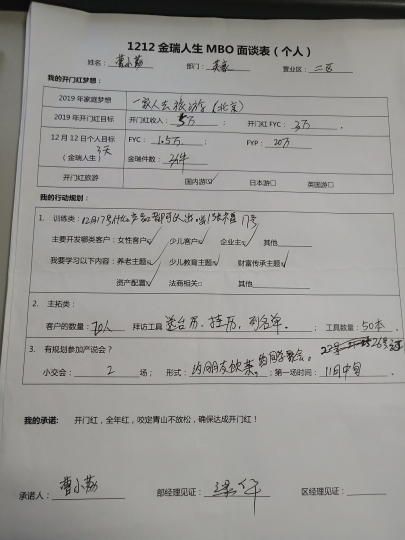 1212 金瑞人生 MBO 面谈表（个人）
姓名： 曹小荔 部门： 营业区： 二区
我的开门红梦想：
2019 年家庭梦想 一家人去旅游（北京）
2019 年开门红目标 开门红收入： 5万 ； 开门红 FYC： 3万 .
12 月 12 日个人目标 3天
（金瑞人生） FYC： 1.5万 ； FYP： 20万
金瑞件数： 3件
开门红旅游 国内游☑ 日本游□ 英国游□
我的行动规划：
1. 训练类：12月17号
主要开发哪类客户：女性客户✓ 少儿客户✓ 企业主✓ 其他
我要学习以下内容：养老主题✓ 少儿教育主题✓ 财富传承主题✓
资产配置✓ 法商相关□ 其他
2. 主拓类：
客户的数量： 70人 拜访工具 送台历、挂历，列名单。 ； 工具数量： 50本 .
3. 有规划参加产说会？
小交会： 2 场； 形式： 约朋友饮茶，约同学聚会。 ；第一场时间： 11月中旬 .
我的承诺： 开门红，全年红，咬定青山不放松，确保达成开门红！
承诺人： 曹小荔 部经理见证： 区经理见证：